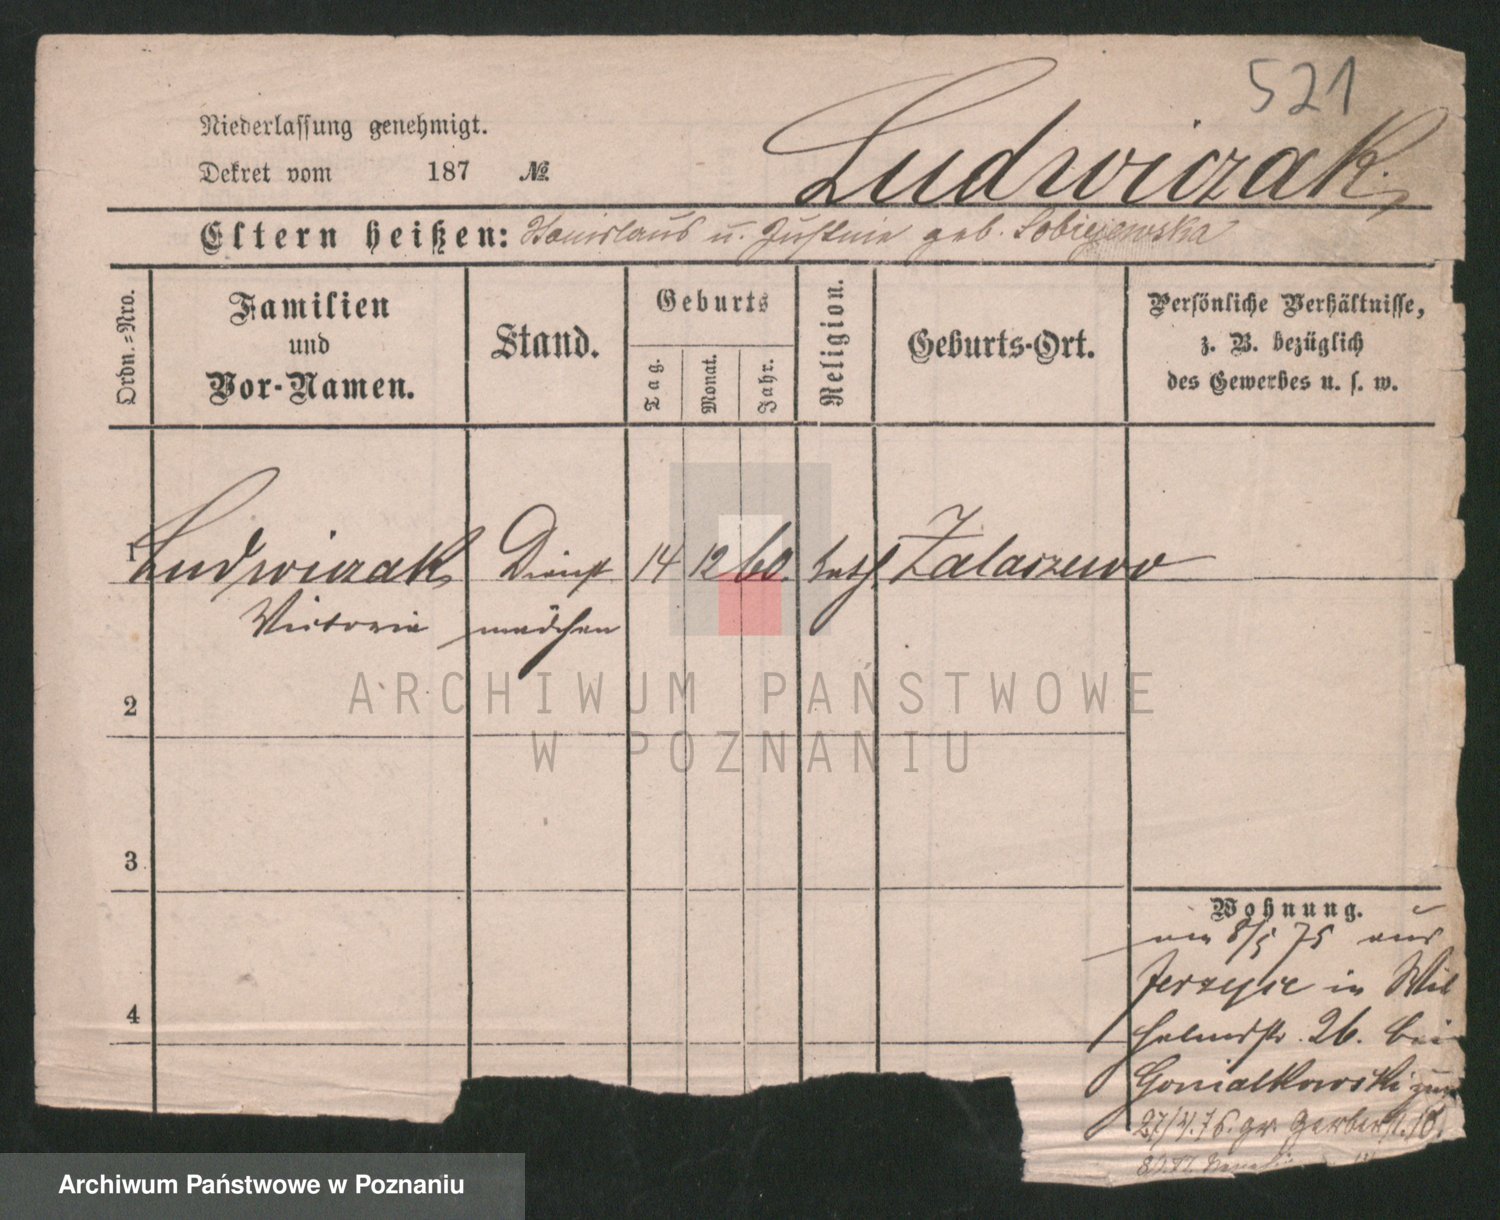 521
Niederlassung genehmigt.
Dekret vom 187 №
Ludwiczak
Eltern heißen: Stanislaus u. Justine geb. Sobiejewska
Ordn.=Nro.
Familien
und
Vor-Namen.
Stand.
Geburts
Tag.
Monat.
Jahr.
Religion.
Geburts-Ort.
Persönliche Verhältnisse,
z. B. bezüglich
des Gewerbes u. s. w.
1 Ludwiczak Dienst 14 12 60. kath. Zalaszewo
Victoria mädchen
2
3
4
Wohnung.
am 8/5 75 aus
Jerzyce in Wil
helmstr. 26. bei
Gonialkowski zum
27/4.76. gr. Gerberst. 18.
ARCHIWUM PAŃSTWOWE
W POZNANIU
Archiwum Państwowe w Poznaniu